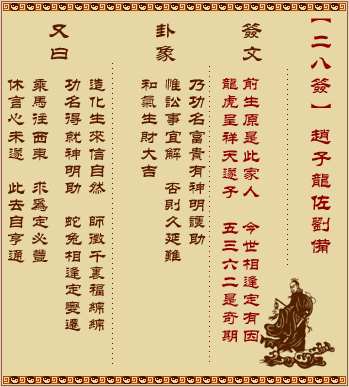 【二八簽】 趙子龍佐劉備
簽文
前生原是此家人 今世相逢定有因
龍虎呈祥天遂子 五三六二是奇期
卦象
乃功名富貴有神明護助
惟訟事宜解 否則久延難
和氣生財大吉
又曰
造化生來信自然 師徵千裏福綿綿
功名得就神明助 蛇兔相逢定變遷
乘馬往西東 求爲定必豐
休言心未遂 此去自亨通